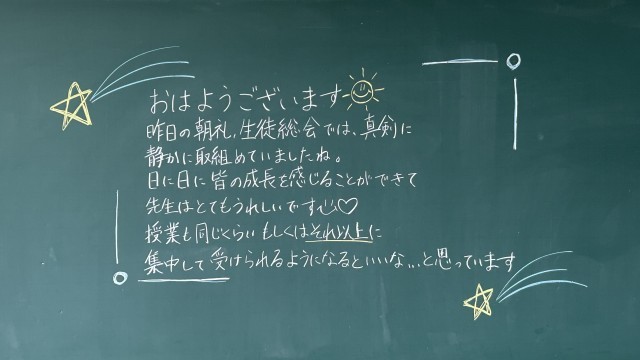 おはようございます
昨日の朝礼、生徒総会では、真剣に
静かに取組めていましたね。
日に日に皆の成長を感じることができて
先生はとてもうれしいです心♡
授業も同じくらいもしくはそれ以上に
集中して受けられるようになるといいな...と思っています